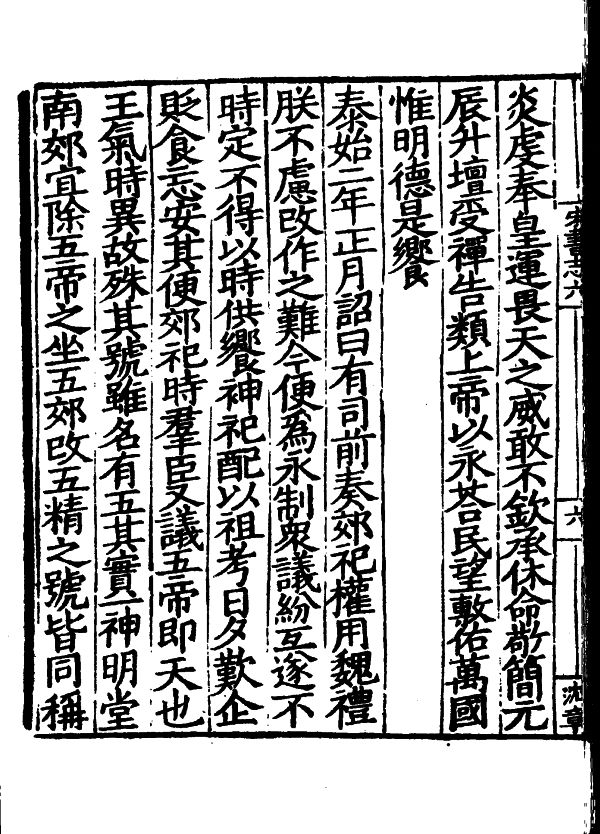 炎虔奉皇運畏天之威敢不欽承休命敬簡元
辰升壇受禪告類上帝以永荅民望敷佑萬國
惟明德是饗
泰始二年正月詔曰有司前奏郊祀權用魏禮
朕不慮改作之難今便為永制衆議紛互遂不
時定不得以時供饗神祀配以祖考日夕歎企
貶食忘安其便郊祀時羣臣又議五帝即天也
王氣時異故殊其號雖名有五其實一神明堂
南郊宜除五帝之坐五郊改五精之號皆同稱
宋書志六
六
沈章